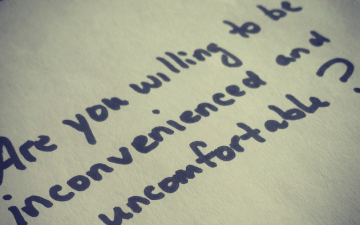 Are you willing to be
inconvenienced and
uncomfortable?